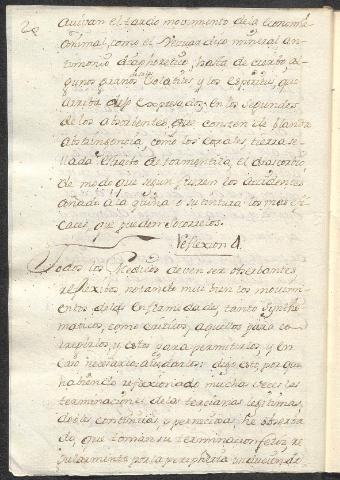 avivan el tardo movimento de la economia
animal, como el Bezuardico mineral, an-
timonio diaphoretico, hasta de cuerbo, al-
gunos granos de sales Volatiles, y los espiritus, que
arriba dejo expresados; en los segundos
de los absorbentes, que constan de blanda
abstringencia, como los Corales, tierra se-
llada, extracto de tormentila, el diascordio
de modo que segun fueren los accidentes
añado à la quina o su tintura los mas efi-
caces, que pueden Socorrelos.
Reflexion 4.
Todos los Medicos deven ser observantes,
reflexibos notando mui bien los movimi-
entos de las Enfermedades, tanto Sympto-
maticos, como criticos, aquellos para co-
rregirlos, y estos para permitirlos, y en
caso necesario ayudarlos: digo esto, por que
habiendo reflexionado muchas veces las
terminaciones de las tercianas lexitimas,
dobles, continuas, y perniciosas, he observa-
do, que toman su terminacion feliz re-
gularmente por la peripheria induciendose